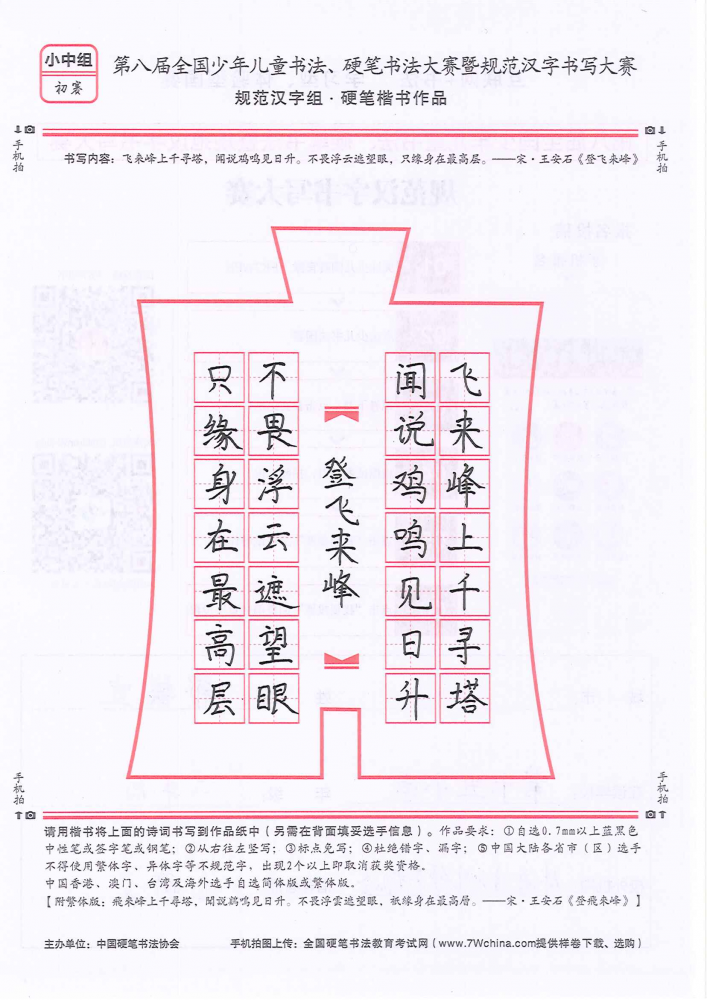 小中组
初赛
第八届全国少年儿童书法、硬笔书法大赛暨规范汉字书写大赛
规范汉字组·硬笔楷书作品
手机拍
手机拍
书写内容：飞来峰上千寻塔，闻说鸡鸣见日升。不畏浮云遮望眼，只缘身在最高层。——宋·王安石《登飞来峰》
飞来峰上千寻塔
闻说鸡鸣见日升
登飞来峰
不畏浮云遮望眼
只缘身在最高层
手机拍
手机拍
请用楷书将上面的诗词书写到作品纸中（另需在背面填妥选手信息）。作品要求：①自选0.7mm以上蓝黑色
中性笔或签字笔或钢笔；②从右往左竖写；③标点免写；④杜绝错字、漏字；⑤中国大陆各省市（区）选手
不得使用繁体字、异体字等不规范字，出现2个以上即取消获奖资格。
中国香港、澳门、台湾及海外选手自选简体版或繁体版。
【附繁体版：飛來峰上千尋塔，聞說鷄鳴見日昇。不畏浮雲遮望眼，衹緣身在最高層。——宋·王安石《登飛來峰》】
主办单位：中国硬笔书法协会
手机拍图上传：全国硬笔书法教育考试网（www.7Wchina.com提供样卷下载、选购）